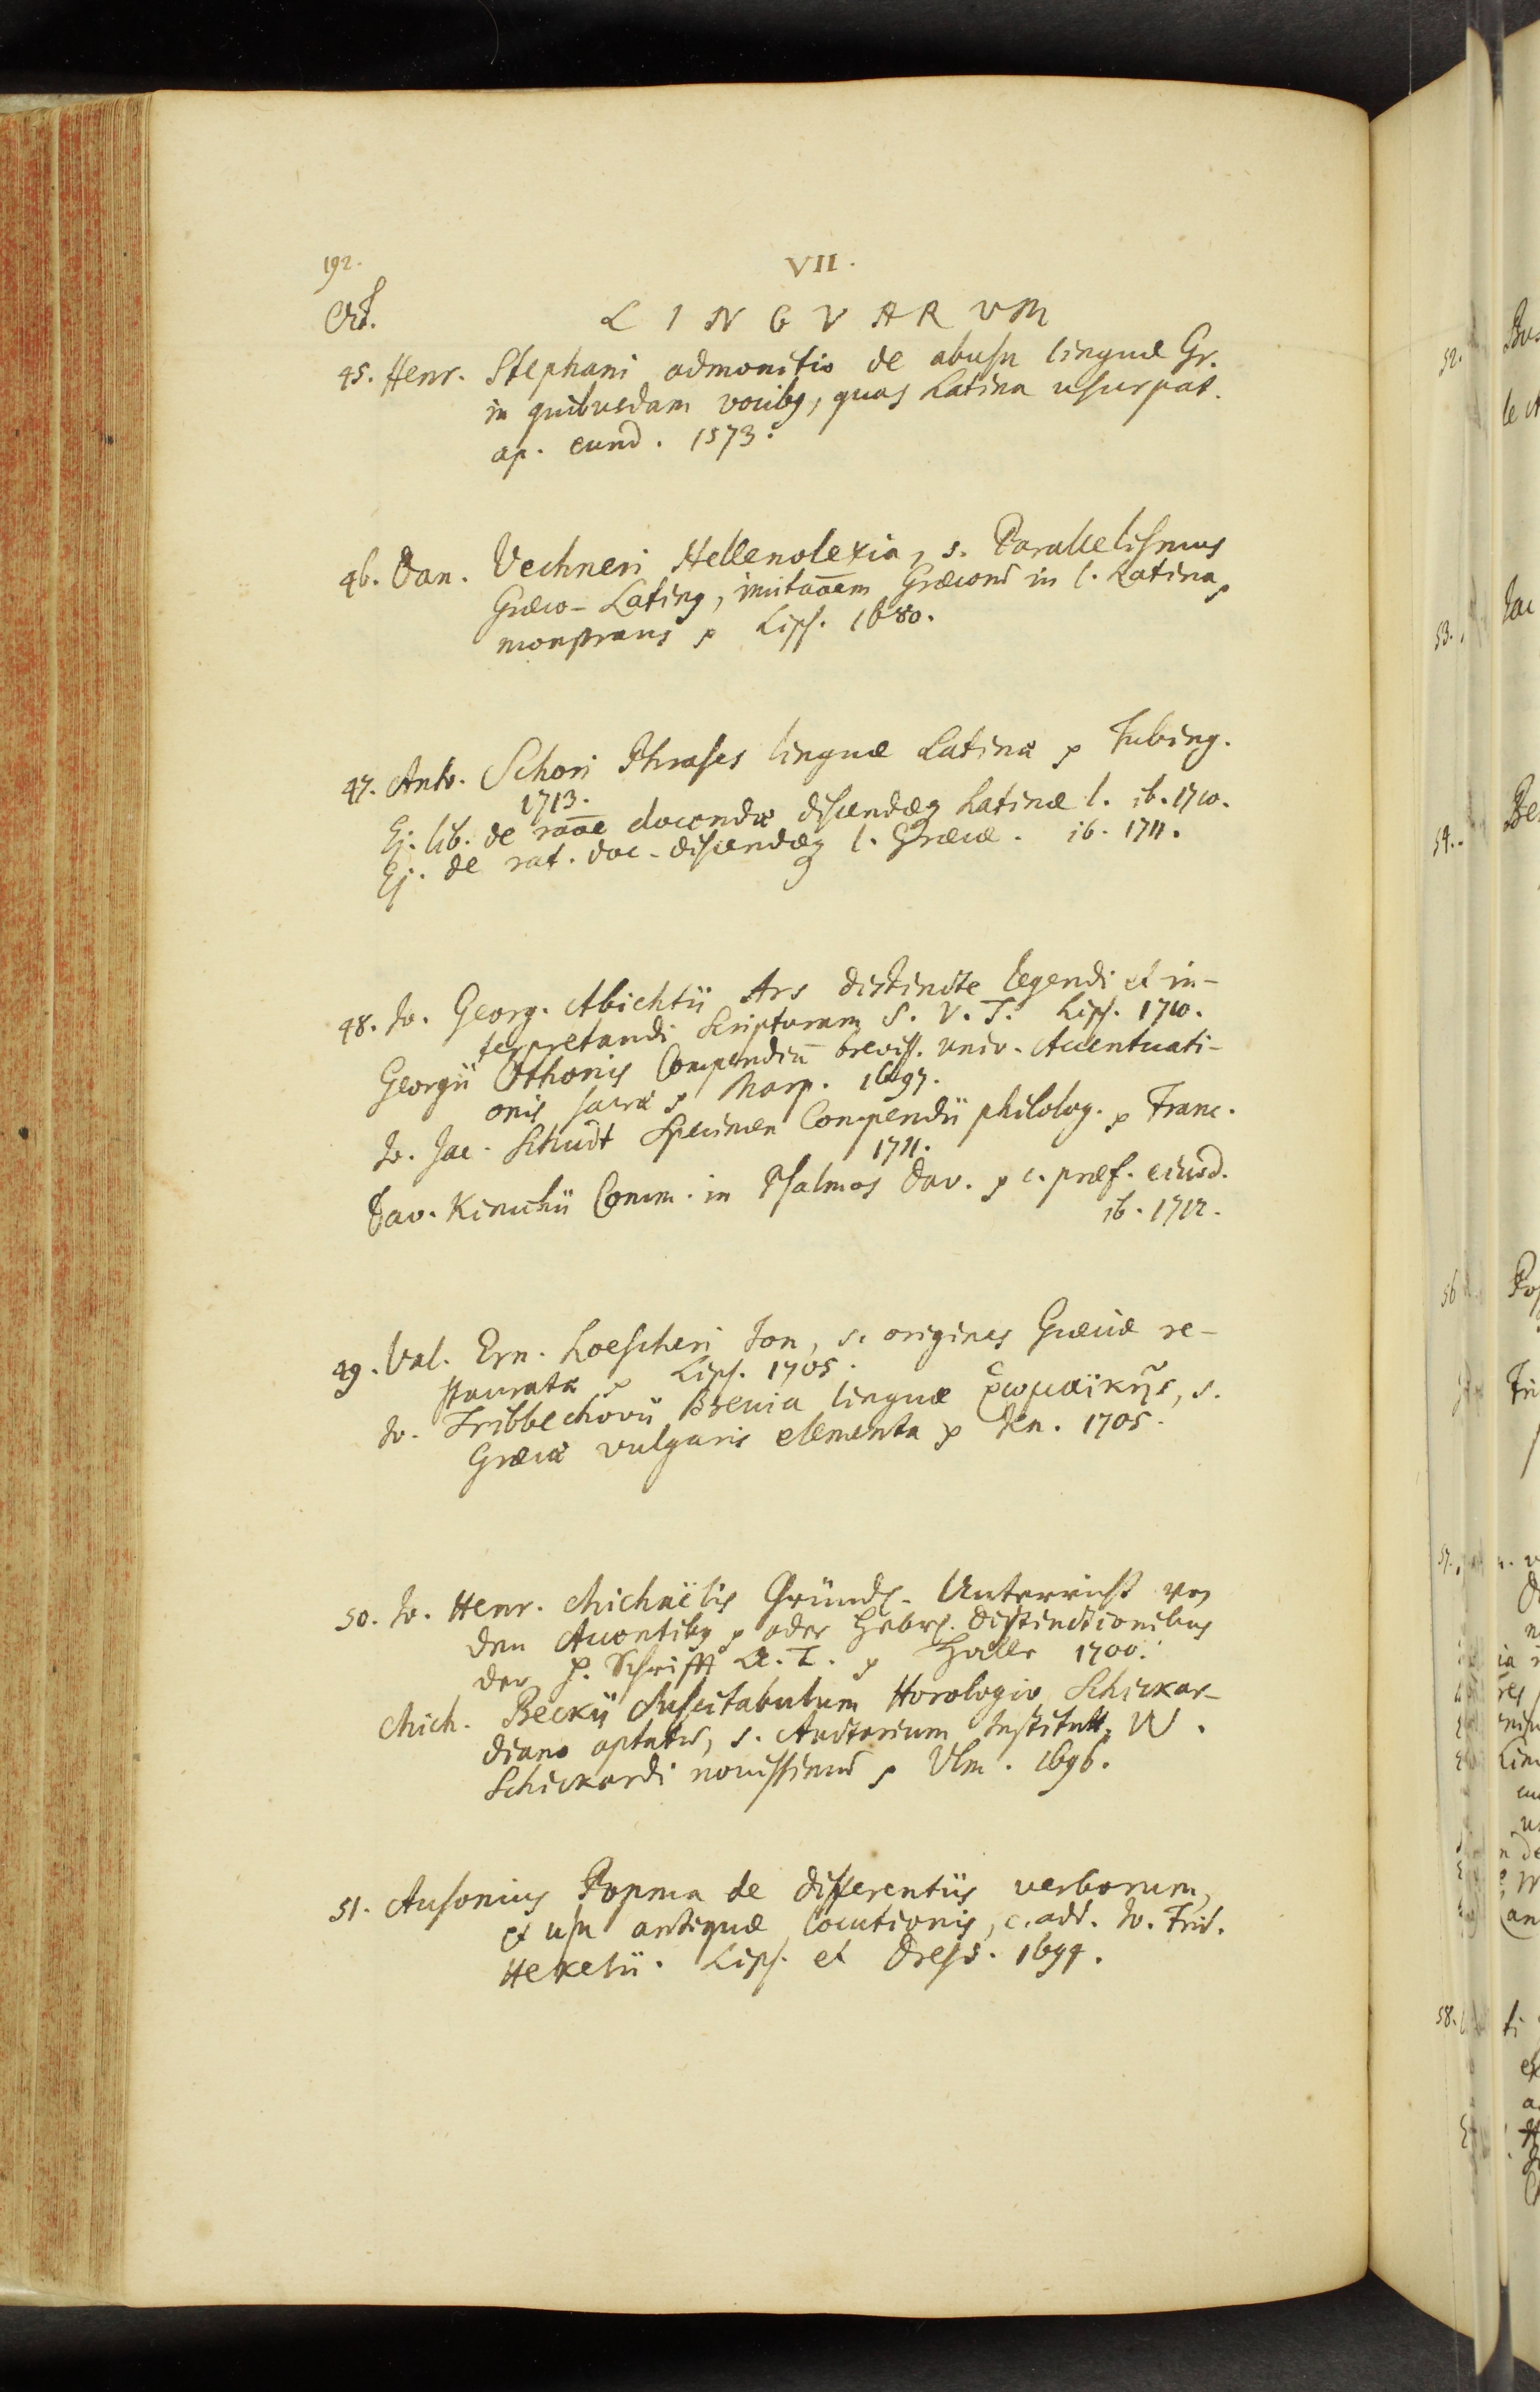 192.
VII.
Oct.
LINGVARVM
45. Henr. Stephani admonitio de abusu linguæ Gr.
in quibusdam vocibꝫ, quas Latina usurpat.
ap. eund. 1573.
46. Dan. Vechneri Hellenolexia, s. Parallelismus
Græco-Latinꝫ, imitaōem Græcorū in l. Latina
monstrans ꝛ Lips. 1680.
47. Ant. Schori Phrases linguæ Latinæ ꝛ Tubing.
1713.
Ej. lib. de raōe docendæ discendæqꝫ Latinæ l. ib. 1710.
Ej. de rat. doc. discendæqꝫ l. Græcæ. ib. 1711.
48. Jo. Georg. Abichtii Ars distincte legendi et in-
terpretandi Scripturam S. V. T. Lips. 1710.
Georgii Othonis Compendiū breviss. univ. Accentuati-
onis sacræ ꝛ Marp. 1697.
Jo. Jac. Schudt Specimen Compendii philolog. ꝛ Franc.
1711.
Dav. Kimchii Comm. in Psalmos Dav. ꝛ c. præf. eiusd.
ib. 1712.
49. Val. Ern. Loescheri Jon, s. origines Græciæ re-
stauratæ ꝛ Lips. 1705.
Jo. Tribbechovii Brevia linguæ ῥωμαϊκῆς, s.
Græcæ vulgaris elementa ꝛ Jen. 1705.
50. Jo. Henr. Michaëlis Gründl. Unterricht von
den Accentibꝫ ꝛ oder Hebr. distinctionibus
der H. Schrifft A. T. ꝛ Halle 1700.
Mich. Beckii Suscitabulum Horologio Schickar-
diano aptatū, s. Auctarium Institutt. W.
Schickardi novissimū ꝛ Ulm. 1696.
51. Ausonius Popma de differentiis verborum,
et usu antiquæ locutionis, c. add. Jo. Frid.
Hekelii. Lips. et Dresd. 1694.